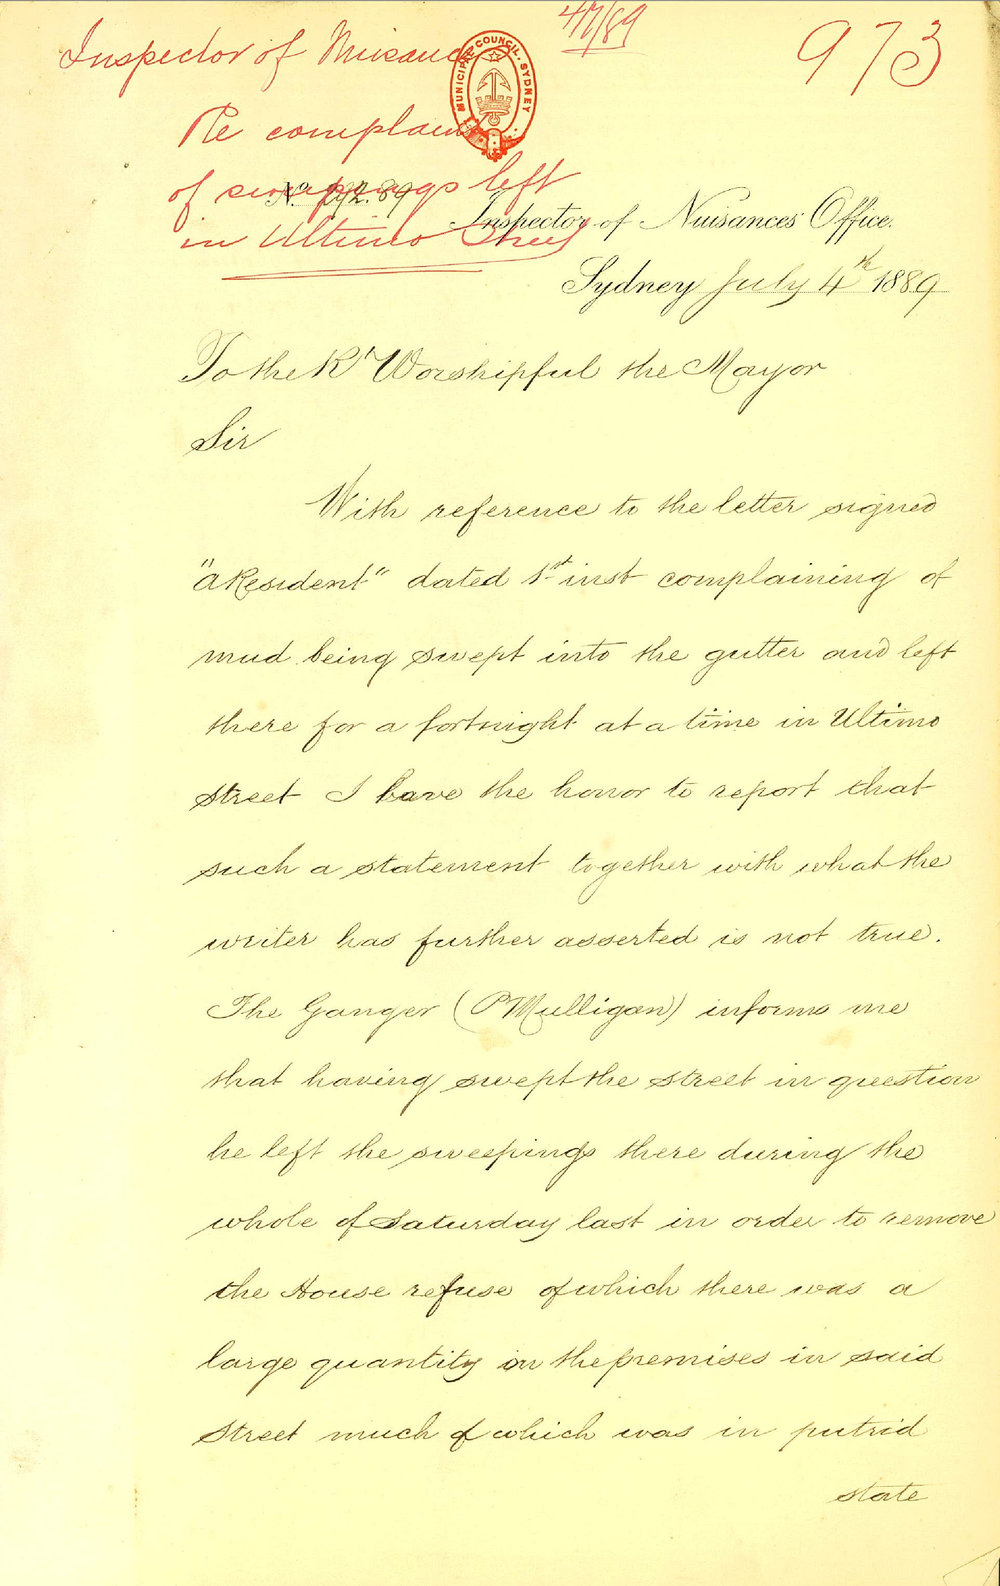 4/7/89
973
Inspector of Nuisances
Re complaint
of sweepings left
in Ultimo Street
MUNICIPAL COUNCIL. SYDNEY
No. 89
Inspector of Nuisances Office.
Sydney July 4th 1889
To the Rt Worshipful the Mayor
Sir
With reference to the letter signed
"A Resident" dated 1st inst complaining of
mud being swept into the gutter and left
there for a fortnight at a time in Ultimo
Street I have the honor to report that
such a statement together with what the
writer has further asserted is not true.
The Ganger (P Mulligan) informs me
that having swept the street in question
he left the sweepings there during the
whole of Saturday last in order to remove
the House refuse of which there was a
large quantity on the premises in said
Street much of which was in putrid
state